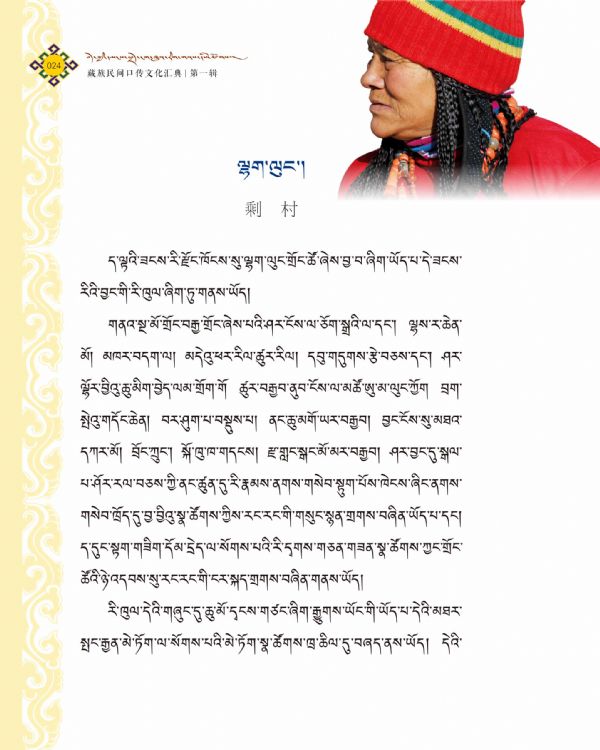 024
藏族民间口传文化汇典 | 第一辑
ལྷག་ལུང་།
剩 村
ད་ལྟའི་ཟངས་རི་རྫོང་ཁོངས་སུ་ལྷག་ལུང་གྲོང་ཚོ་ཞེས་བྱ་བ་ཞིག་ཡོད་པ་དེ་ཟངས་
རིའི་བྱང་གི་རི་ཁུལ་ཞིག་ཏུ་གནས་ཡོད།
གནའ་སྔ་མོ་གྲོང་བརྒྱ་གྲོང་ཞེས་པའི་ཤར་ངོས་ལ་ཅོག་སྒྲའི་ལ་དང་། ལྷས་ར་ཆེན་
མོ། མཁར་བདག་ལ། མདེའུ་ཕར་རིལ་ཚུར་རིལ། དབུ་གདུགས་རྩེ་བཅས་དང་། ཤར་
ལྷོར་བྱིའུ་ཆུ་མིག་བྱེད་ལམ་གྲོག་གོ ཚུར་བརྒྱབ་ནུབ་ངོས་ལ་མཚོ་ཨུ་མ་ལུང་ཀྱོག བྲག་
སྤེའུ་གདོང་ཆེན། བར་ཤུག་པ་བསྡུས་པ། ནང་ཆུ་མགོ་ཡར་བརྒྱབ། བྱང་ངོས་སུ་མཐའ་
དཀར་མོ། བྲོང་ཀྲུང་། སྐོ་ཁུ་ཁ་གདངས། རྫ་གླང་སྒང་མོ་མར་བརྒྱབ། ཤར་བྱང་དུ་སྒལ་
པ་ཤོར་རལ་བཅས་ཀྱི་ནང་ཚུན་དུ་རི་རྣམས་ནགས་གསེབ་སྟུག་པོས་ཁེངས་ཞིང་ནགས་
གསེབ་ཁྲོད་དུ་བྱ་བྱིའུ་སྣ་ཚོགས་ཀྱིས་རང་རང་གི་གསུང་སྙན་གྲགས་བཞིན་ཡོད་པ་དང།
ད་དུང་སྟག་གཟིག་དོམ་དྲེད་ལ་སོགས་པའི་རི་དྭགས་གཅན་གཟན་སྣ་ཚོགས་ཀྱང་གྲོང་
ཚོའི་ཉེ་འདབས་སུ་རང་རང་གི་ངར་སྐད་གྲགས་བཞིན་གནས་ཡོད།
རི་ཁུལ་དེའི་གཞུང་དུ་ཆུ་མོ་དྭངས་གཙང་ཞིག་རྒྱུགས་ཡོང་གི་ཡོད་པ་དེའི་མཐར་
སྤང་རྒྱན་མེ་ཏོག་ལ་སོགས་པའི་མེ་ཏོག་སྣ་ཚོགས་ཁྲ་ཆིལ་དུ་བཞད་ནས་ཡོད། དེའི་